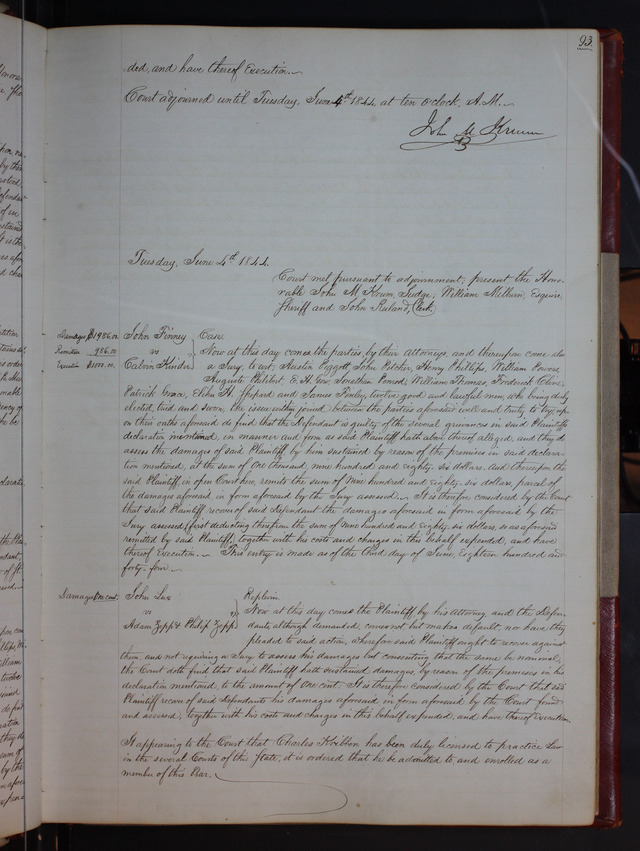 93.
ded, and have thereof Execution.
Court adjourned until Tuesday, June 4th 1844, at ten o'clock, A.M.
John M Krum
Tuesday, June 4th 1844.
Court met pursuant to adjournment, present the Hono-
rable John M. Krum, Judge, William Milburn, Esquire,
Sheriff and John Ruland, Clerk.
Damages $1986.00 John Finney } Case
Remitted 986.00 vs Now at this day comes the parties by their Attorneys, and thereupon come also
Execution $1000.00 Calvin Kinder a Jury, to wit, Austin Piggott, John Pitcher, Henry Phillips, William Powers,
Auguste Philibert, E. H. Gow, Jonathan Pomeroy, William Thomas, Frederick Cline,
Patrick Grace, Elihu H. Shepard and James Finley, twelve good and lawful men, who being duly
elected, tried and sworn, the issue within joined between the parties aforesaid well and truly to try, up-
on their oaths aforesaid do find that the Defendant is guilty of the several grievances in said Plaintiffs
declaration mentioned, in manner and form as said Plaintiff hath above thereof alleged, and they do
assess the damages of said Plaintiff by him sustained by reason of the premises in said declara-
tion mentioned, at the sum of One thousand, nine hundred and eighty six dollars. And thereupon the
said Plaintiff in open Court here, remits the sum of Nine hundred and Eighty six dollars, parcel of
the damages aforesaid in form aforesaid by the Jury assessed. It is therefore considered by the Court
that said Plaintiff recover of said defendant the damages aforesaid in form aforesaid by the
Jury assessed (first deducting therefrom the sum of Nine hundred and eighty six dollars, so as aforesaid
remitted by said Plaintiff) together with his costs and charges in this behalf expended, and have
thereof Execution. This entry is made as of the third day of June, Eighteen hundred and
forty-four.
Damages One cent. John Lee } Replevin
vs Now at this day comes the Plaintiff by his Attorney and the Defen-
Adam Zepp & Philip Zepp dants although demanded, comes not but makes default, nor have they
pleaded to said action, wherefore said Plaintiff ought to recover against
them, and not requiring a Jury to assess his damages but consenting that the same be nominal,
the Court doth find that said Plaintiff hath sustained damages, by reason of the premises in his
declaration mentioned, to the amount of One cent. It is therefore considered by the Court that said
Plaintiff recover of said Defendants his damages aforesaid in form aforesaid by the Court found
and assessed, together with his costs and charges in this behalf expended, and have thereof Execution.
It appearing to the Court that Charles Kribbon has been duly licensed to practice Law
in the several Courts of the State, it is ordered that he be admitted to, and enrolled as a
member of this Bar.